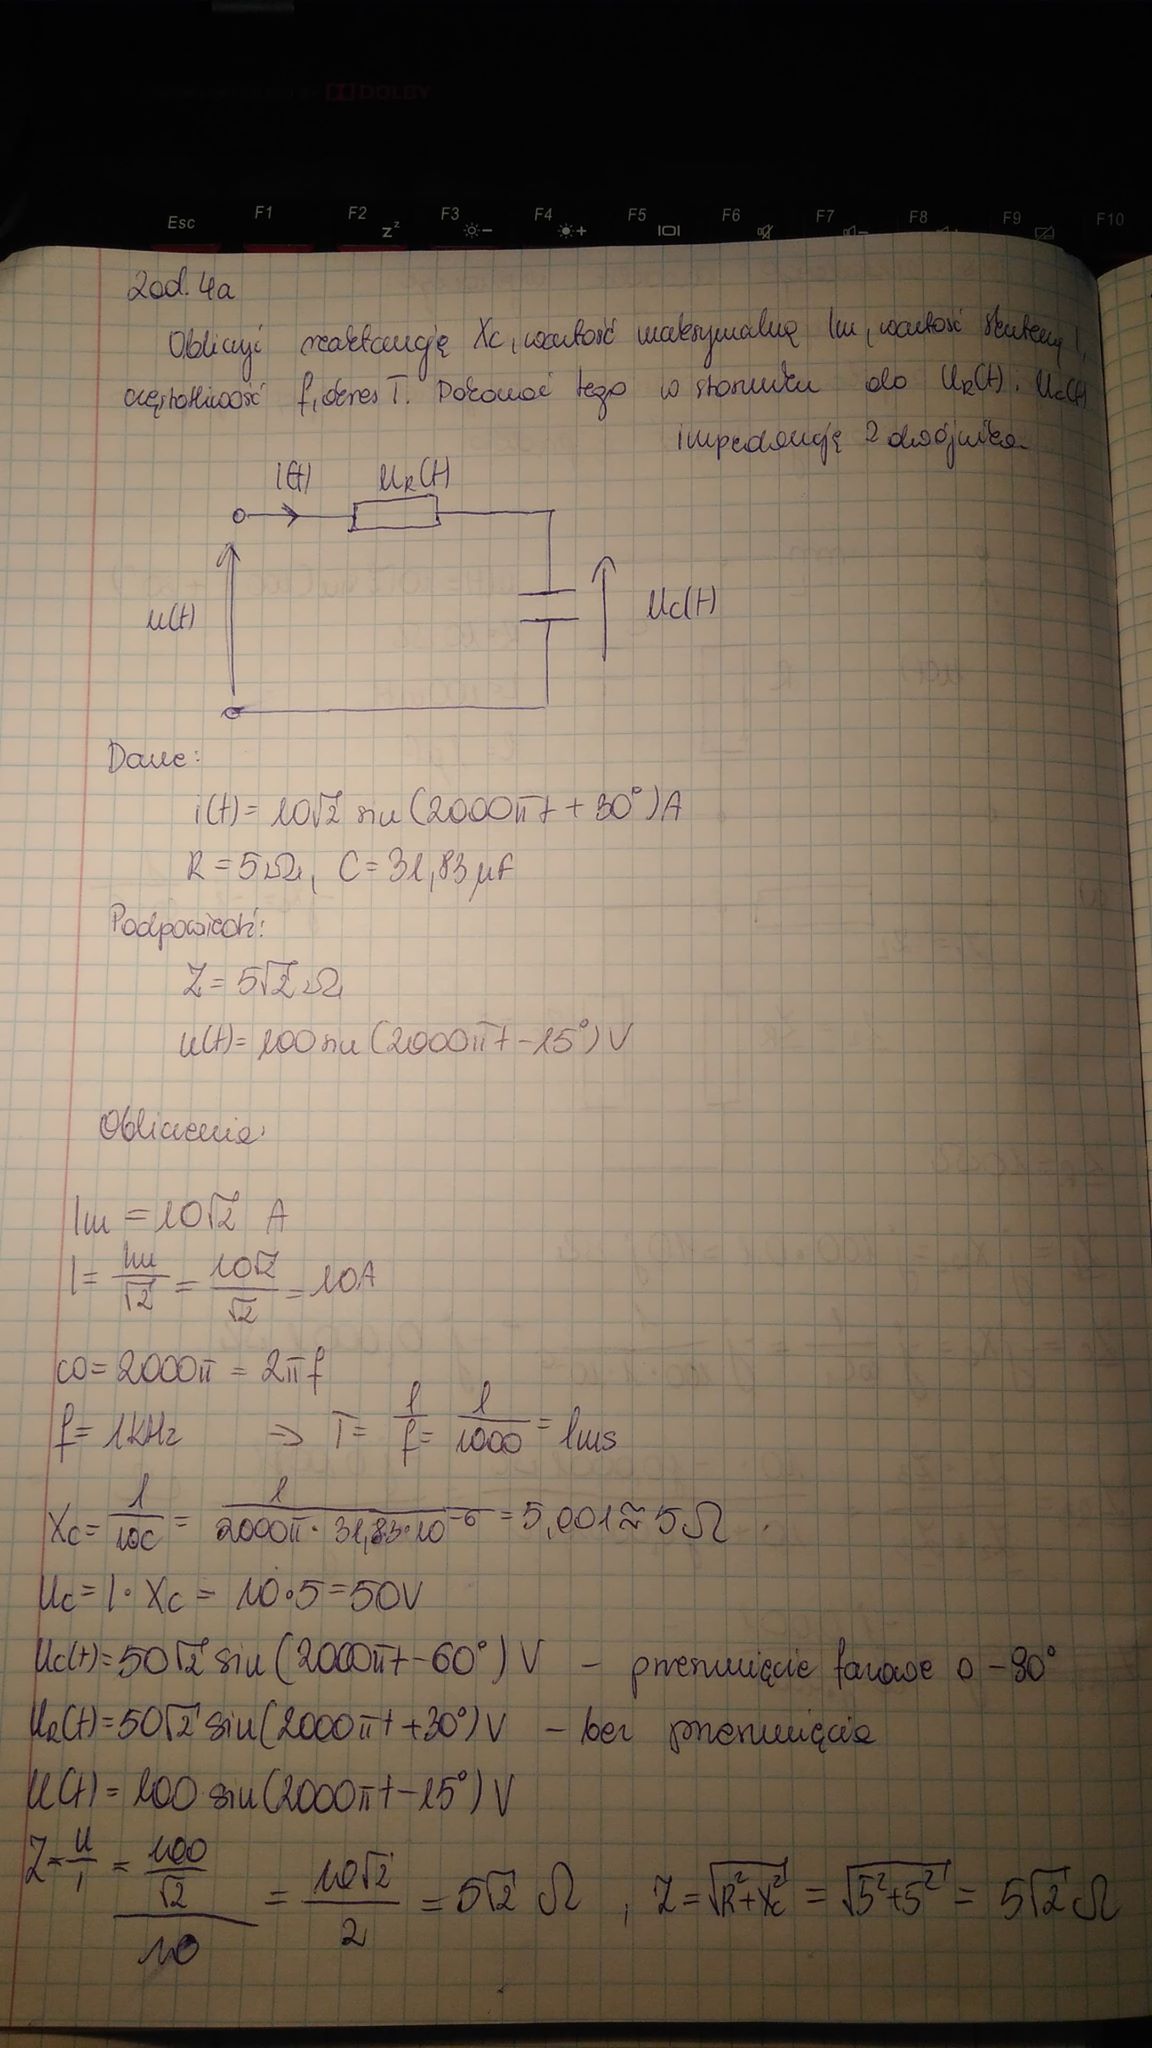 DOLBY
Esc F1 F2 F3 F4 F5 F6 F7 F8 F9 F10
zᶻ
Zad. 4a
Obliczyć reaktancję Xc, wartość maksymalną Im, wartość skuteczną I,
częstotliwość f, okres T. Dokonać tego w stosunku do UR(t), Uc(t)
impedancję Z dwójnika.
i(t) UR(t)
u(t) Uc(t)
Dane:
i(t) = 10√2 sin (2000πt + 30°) A
R = 5Ω, C = 31,83 μF
Podpowiedź:
Z = 5√2 Ω
u(t) = 100 sin (2000πt - 15°) V
Obliczenia:
Im = 10√2 A
I = Im/√2 = 10√2/√2 = 10A
ω = 2000π = 2πf
f = 1kHz => T = 1/f = 1/1000 = 1ms
Xc = 1/ωC = 1/(2000π · 31,83·10⁻⁶) = 5,001 ≈ 5Ω
Uc = I · Xc = 10 · 5 = 50V
Uc(t) = 50√2 sin (2000πt - 60°) V - przesunięcie fazowe o -90°
UR(t) = 50√2 sin (2000πt + 30°) V - bez przesunięcia
U(t) = 100 sin (2000πt - 15°) V
Z = U/I = (100/√2)/10 = 10√2/2 = 5√2 Ω , Z = √(R²+Xc²) = √(5²+5²) = 5√2 Ω